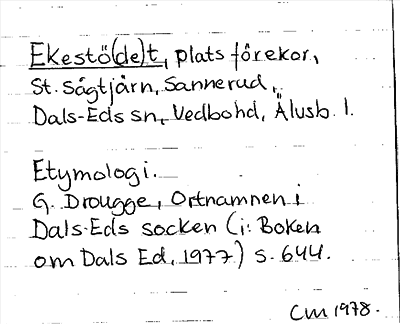 Ekestö(de)t, plats förekom,
St. Sågtjärn, Sannerud,
Dals-Eds sn, Vedbohd, Älvsb. l.
Etymologi.
G. Drougge, Ortnamnen i
Dals-Eds socken (i: Boken
om Dals Ed, 1977) s. 644.
CM 1978.